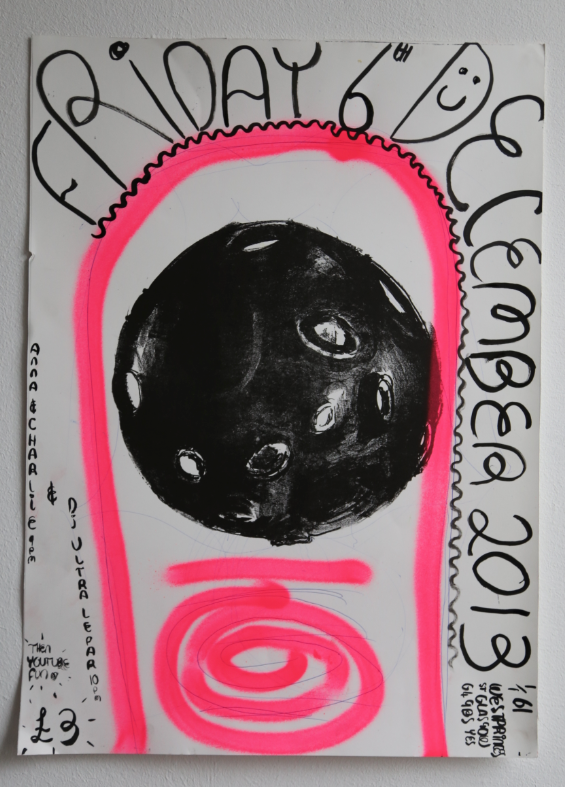 FRiDAY 6TH DECEMBER 2013
ANNA & CHARLiE 9pm
&
DJ ULTRA LEPAR 10pm
THEN
YOUTUBE
FUN
£3
1/61
WEST PRINCES
ST GLASGOW
G4 9BS YES